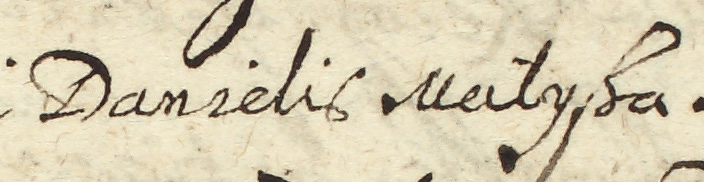 Danielis Matyßa